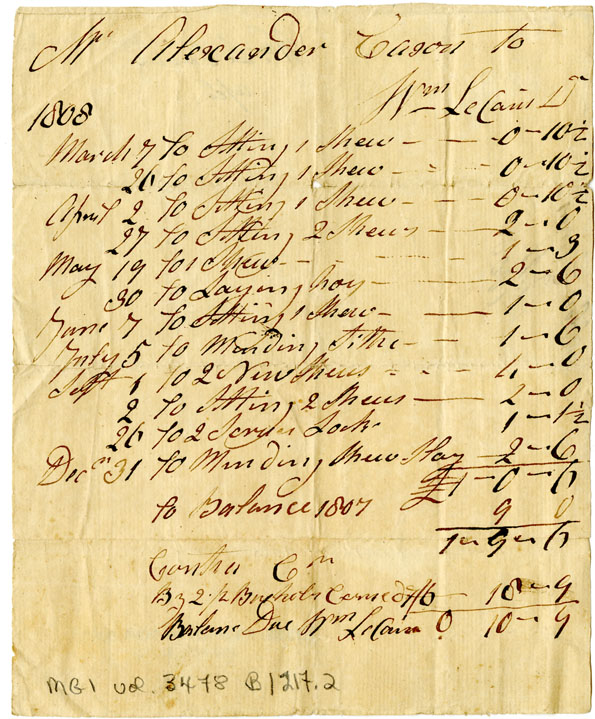 Mr Alexander Cason to
Wm LeCain Dr
1808
March 7 To Sitting 1 Shew — 0 – 10½
26 To Sitting 1 Shew — 0 – 10½
April 2 To Sitting 1 Shew — 0 – 10½
27 To Sitting 2 Shews — 2 – 0
May 19 To 1 Shew — 1 – 3
30 To Laying hoy — 2 – 6
June 7 To Sitting 1 Shew — 1 – 0
July 5 To Minding Sithe — 1 – 6
Sept 1 To 2 New Shews — 4 – 0
2 To Sitting 2 Shews — 2 – 0
26 To 2 Lock 1 – 1½
Decm 31 To Minding Shew 2 – 6
£1 – 0 – 6
to Balance 1807 9 0
1 – 9 – 6
Contra Cr
By 2½ Bushels 18 – 9
Balance Due Wm LeCain 0 10 – 9
MG1 vol. 3478 B/217.2